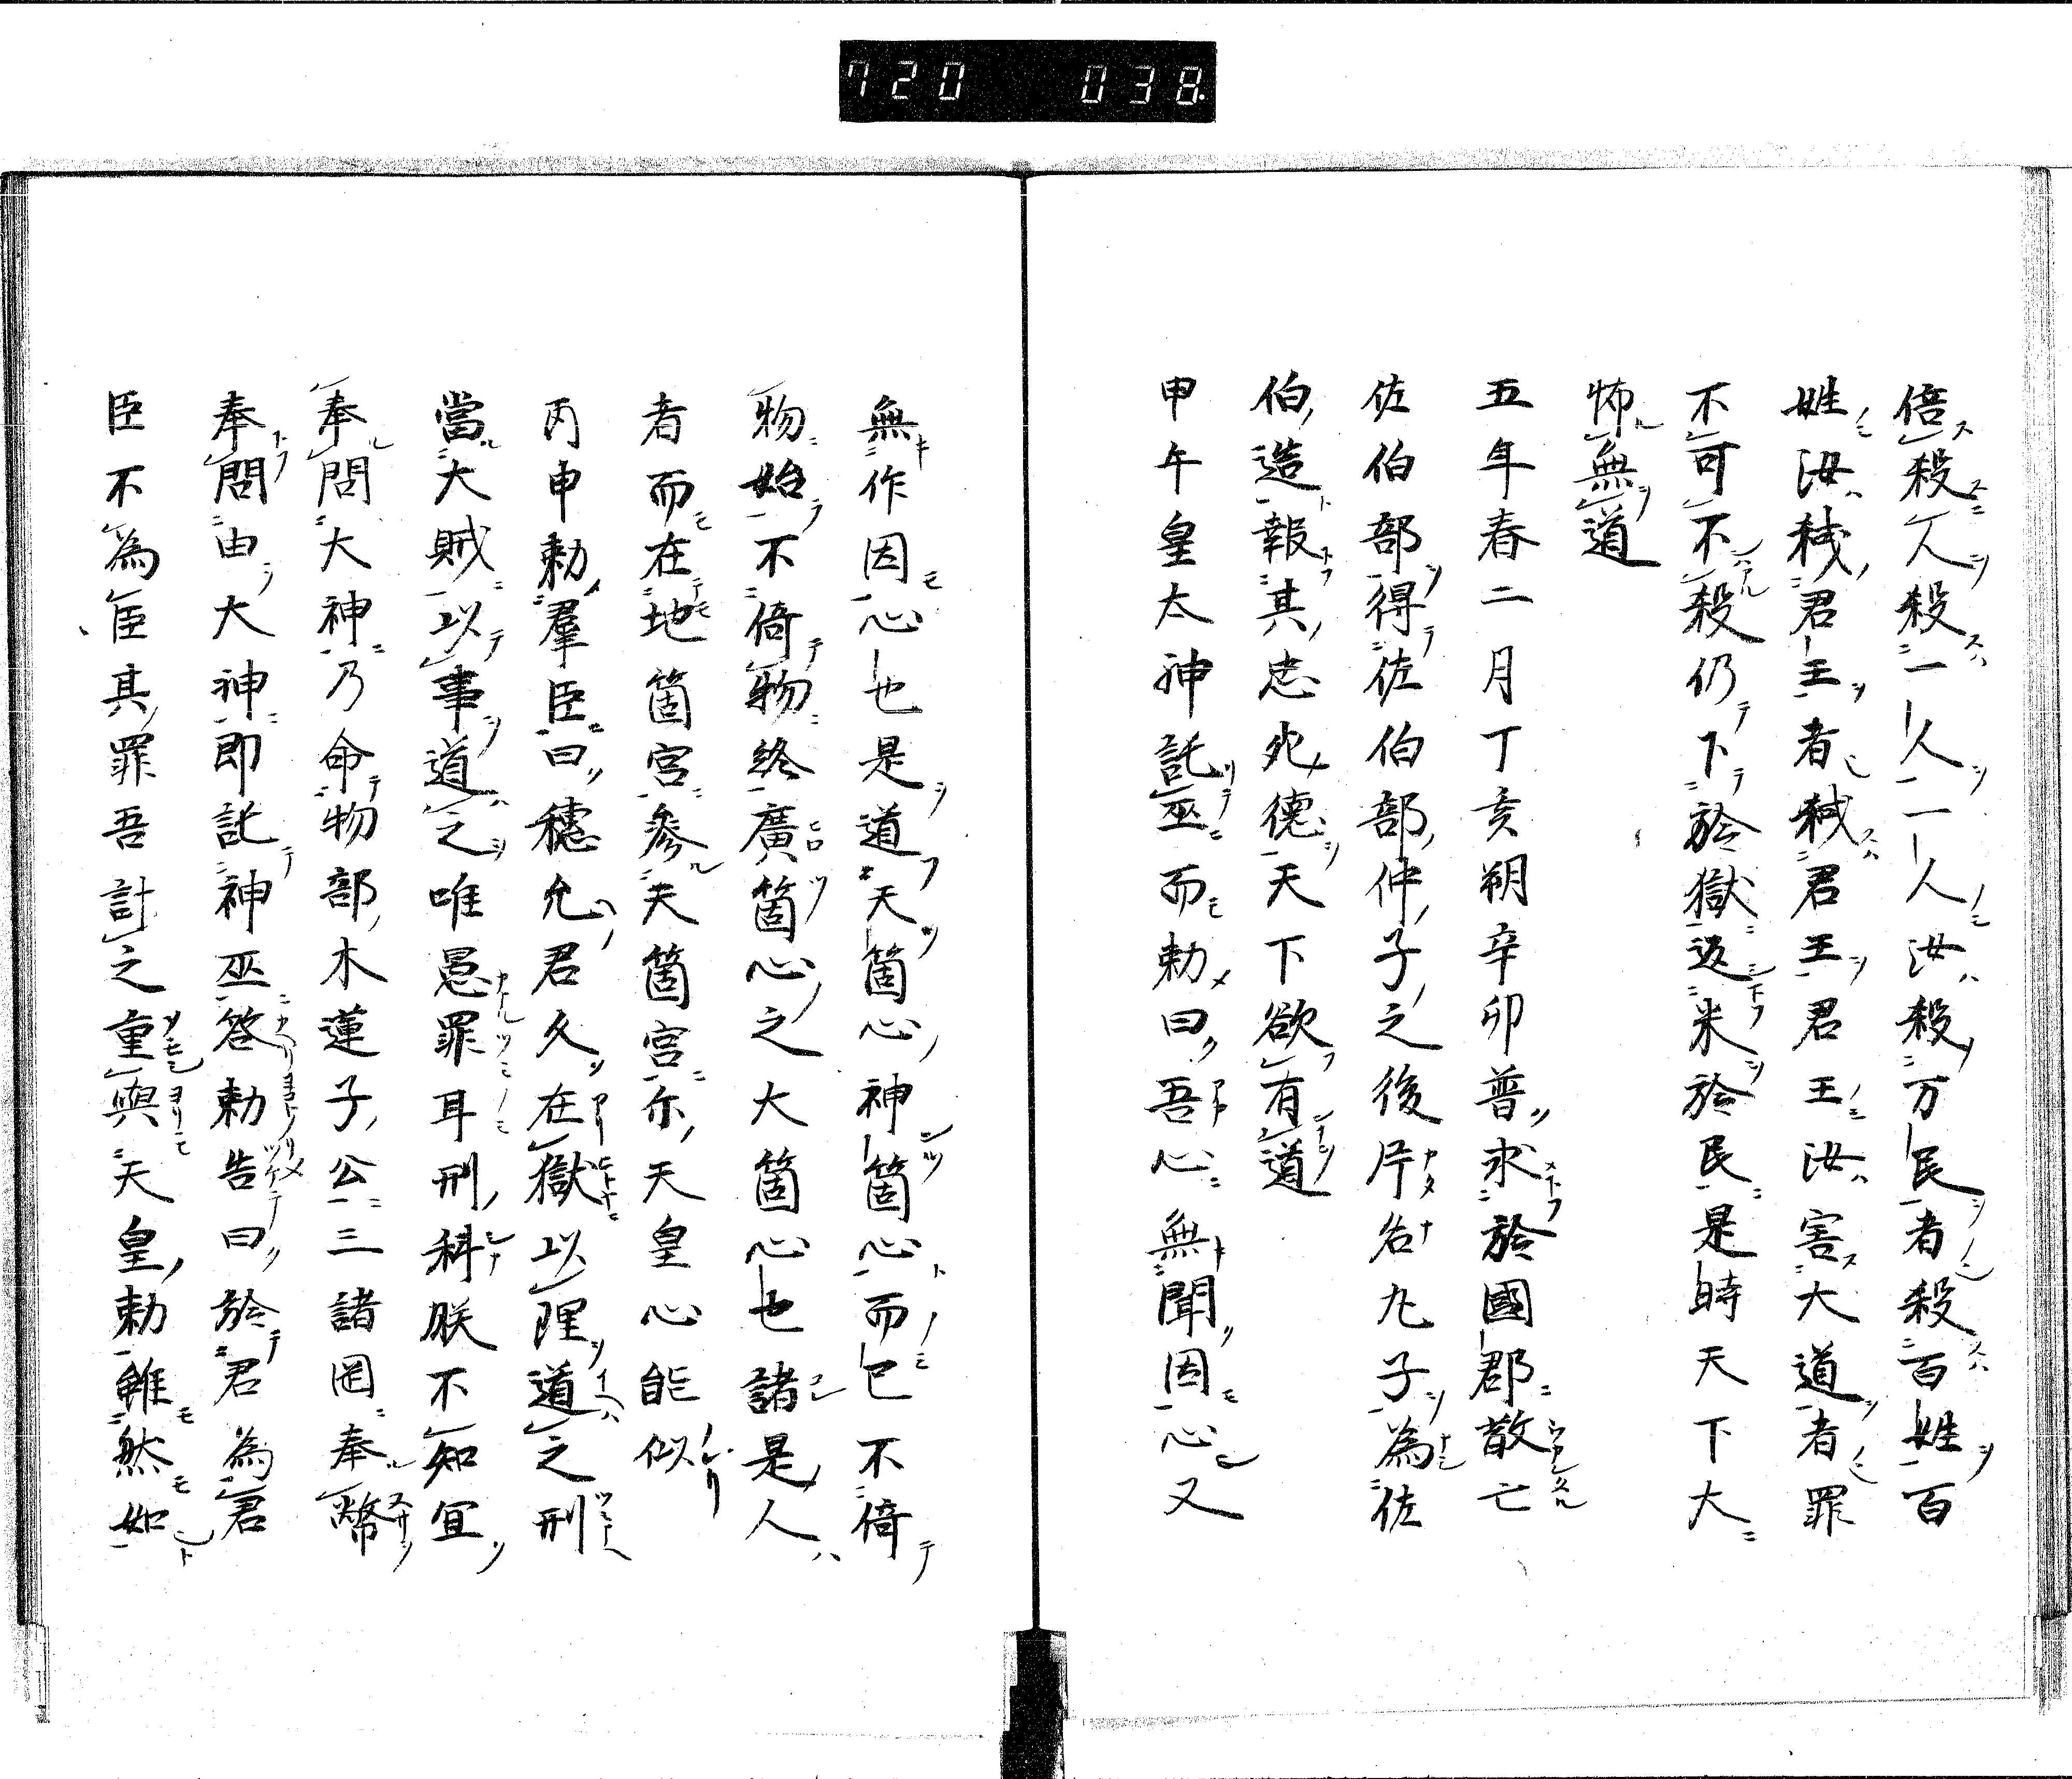 720 038
倍殺人殺一人一人汝殺万民者殺百姓百
姓汝弒君王者弒君王君王汝害大道者罪
不可不殺仍下於獄返米於民是時天下大
怖無道
五年春二月丁亥朔辛卯普求於國郡散亡
佐伯部得佐伯部仲子之後片名九子為佐
伯造報其忠死德天下欲有道
甲午皇太神託巫而勅曰吾心無聞因心又
無作因心也是道天箇心神箇心而已不倚
物始不倚物終廣箇心之大箇心也諸是人
者而在地箇宮參天箇宮尓天皇心能似
丙申勅羣臣曰穗允君久在獄以理道之刑
當大賊以事道之唯愚罪耳刑科朕不知宜
奉問大神乃命物部木蓮子公三諸岡奉幣
奉問由大神即託神巫答勅告曰於君為君
臣不為臣其罪吾計之重與天皇勅雖然如